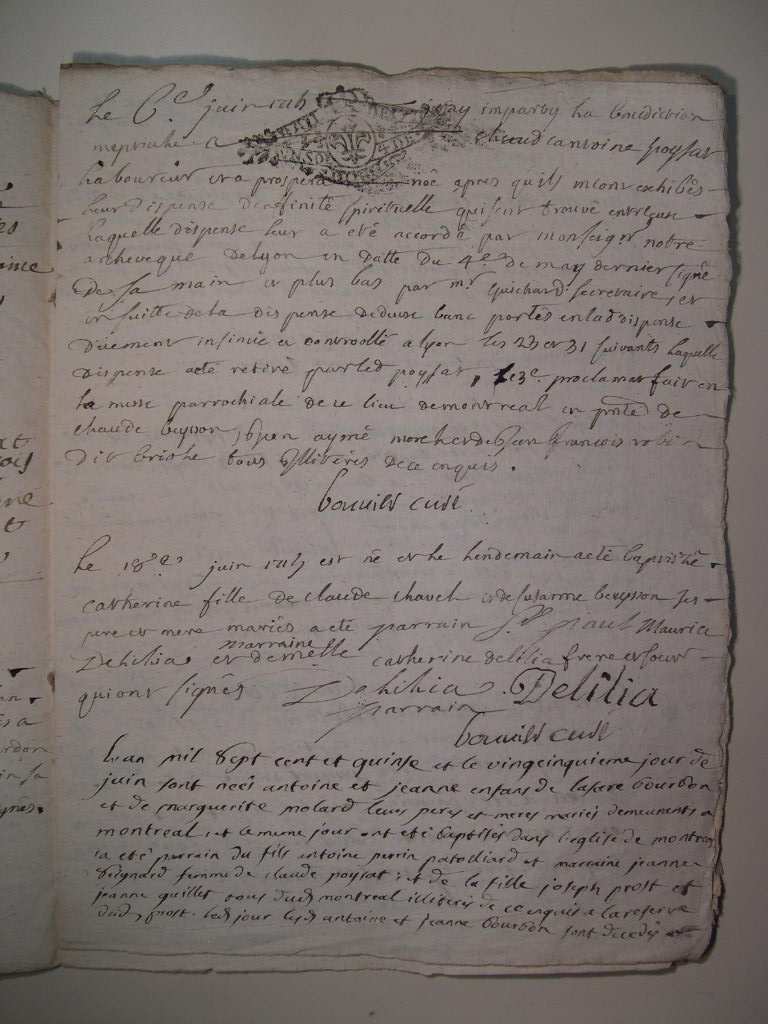 le 6e juin 1715 ay imparty la benediction
nuptiale a claud antoine poysat
laboureur et a prospera apres quils m'ont exhibés
leur dispense d'affinité spirituelle qui sest trouvé entreeux
laquelle dispense leur a eté accordé par monseigr notre
archeveque de lyon en datte du 4e de may dernier signé
de sa main et plus bas par mr guichard secretaire, et
en suitte de la dispense de deux banc portés en lad dispense
düement insinüé et controollé a lyon les 29 et 31 suivants laquelle
dispense a eté retiré par led poysat, le 3e proclamat fait en
la messe parrochiale de ce lieu de montreal en pnce de
claude beysson, aymé françois robin
dit brishe tous illiterés de ce enquis.
curé
le 18e juin 1715 est né et le lendemain a eté baptisée
catherine fille de claude chavel et de susanne beysson ses
pere et mere mariés a eté parrain Sr Maurice
Delilia et demelle marraine catherine delilia frere et sœur
qui ont signés Delilia Delilia
parrain
curé
l'an mil sept cent et quinse et le vingcinquieme jour de
juin sont neés antoine et jeanne enfans de lasare bourbon
et de marguerite molard leurs peres et meres mariés demeurents a
montreal, et le meme jour ont eté baptisés dans l'eglise de montreal
a eté parrain du fils antoine perrin patolliard et marraine jeanne
seignard femme de claude poysat; et de la fille joseph prost et
jeanne quillet tous dud montreal illiterés de ce enquis a la reserve
dud prost. led jour lesd antoine et jeanne bourbon sont decedés